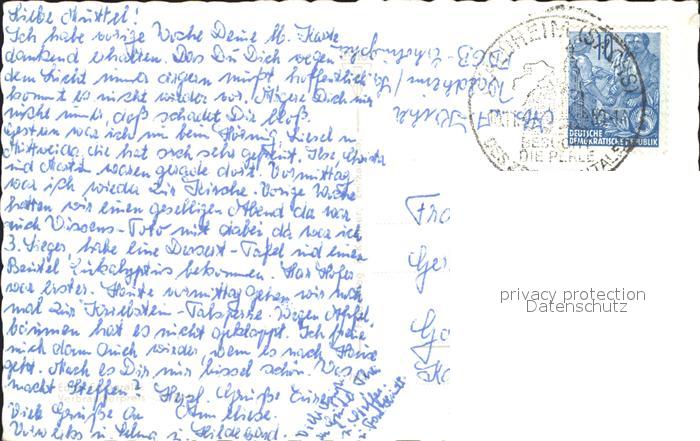 Liebe Muttel!
Ich habe vorige Woche Deine M. Karte
dankend erhalten. Das Du Dich wegen
dem Licht immer ärgern mußt, hoffentlich
kommt es nicht wieder vor. Ärgere Dich nur
nicht mehr, daß schadet Dir bloß.
Gestern war ich in beim Liesel in
Mittweida, die hat sich sehr gefreut. Ilse, Christa
und Martin waren gerade dort. Vormittag
war ich wieder zur Kirche. Vorige Woche
hatten wir einen geselligen Abend da war
auch Wissens-Toto mit dabei da war ich
3. Sieger, habe eine Dessert-Tafel und einen
Beutel Eukalyptus bekommen. Harr Hofer
war erster. Heute vormittag gehen wir noch
mal zur Kriebstein-Talsperre. Wegen Apfel
bäumen hat es nicht geklappt. Ich freue
mich dann auch wieder, wenn es nach Hause
geht. Mach es Dir nur bissel schön. Was
macht Steffen? Herzl. Grüße Eure
Viele Grüße an Annliese.
in Selma in Hildegard
Waldheim
FDGB
WALDHEIM (SACHS)
BESUCHT
DIE PERLE
DES
TALES
10
DEUTSCHE
DEMOKRATISCHE REPUBLIK
Fra
Ger
privacy protection
Datenschutz